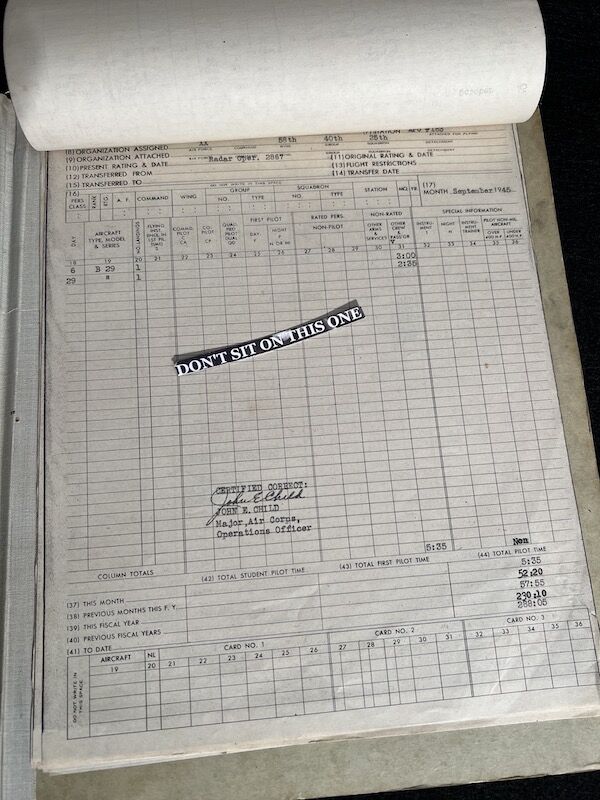 AA 58th 40th 25th
(8) ORGANIZATION ASSIGNED AIR FORCE COMMAND WING GROUP SQUADRON DETACHMENT
(9) ORGANIZATION ATTACHED
(10) PRESENT RATING & DATE Radar Oper. 2867 (11) ORIGINAL RATING & DATE
(12) TRANSFERRED FROM (13) FLIGHT RESTRICTIONS
(15) TRANSFERRED TO (14) TRANSFER DATE
DO NOT WRITE IN THIS SPACE
(16) GROUP SQUADRON (17)
PERS CLASS RANK RTG. A. F. COMMAND WING NO. TYPE NO. TYPE STATION MO. YR. MONTH September 1945
DAY AIRCRAFT TYPE, MODEL & SERIES NO. LANDINGS FIRST PILOT RATED PERS. NON-RATED SPECIAL INFORMATION
NON-PILOT
18 19 20 21 22 23 24 25 26 27 28 29 30 31 32 33 34 35 36
6 B 29 1 3:00
29 " 1 2:35
DON'T SIT ON THIS ONE
CERTIFIED CORRECT:
John E Child
JOHN E. CHILD
Major, Air Corps,
Operations Officer
5:35
COLUMN TOTALS
Non
(42) TOTAL STUDENT PILOT TIME (43) TOTAL FIRST PILOT TIME (44) TOTAL PILOT TIME
(37) THIS MONTH 5:35
(38) PREVIOUS MONTHS THIS F. Y. 52:20
(39) THIS FISCAL YEAR 57:55
(40) PREVIOUS FISCAL YEARS 230:10
(41) TO DATE 288:05
AIRCRAFT NL CARD NO. 1 CARD NO. 2 CARD NO. 3
19 20 21 22 23 24 25 26 27 28 29 30 31 32 33 34 35 36
DO NOT WRITE IN THIS SPACE